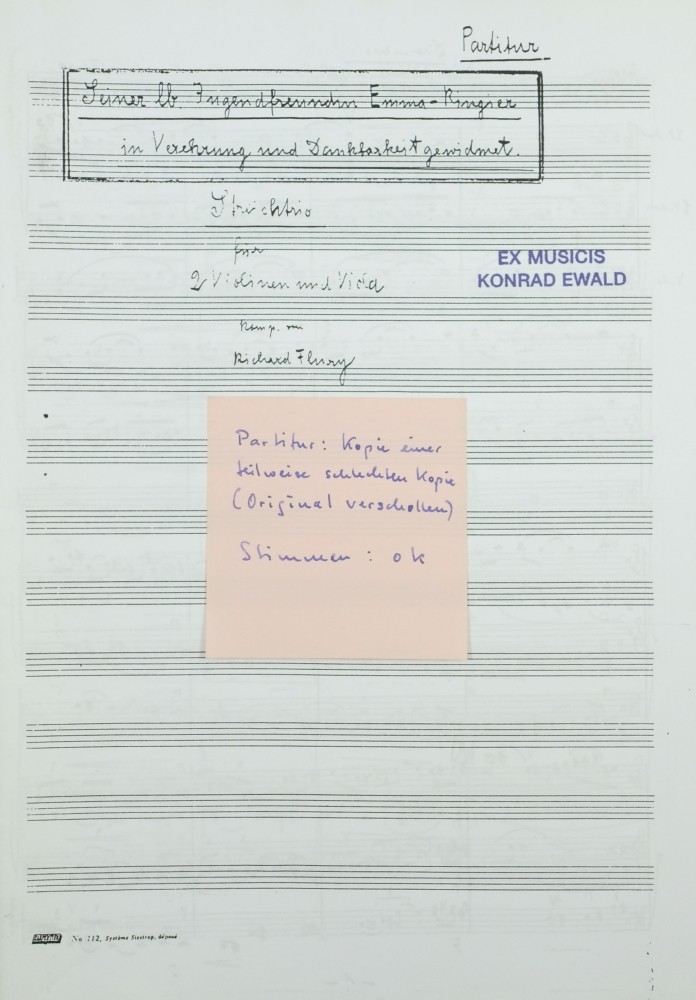 Partitur
Seiner lb. Jugendfreundin Emma-Ringier
in Verehrung und Dankbarkeit gewidmet.
Streichtrio
für
2 Violinen und Viola
EX MUSICIS
KONRAD EWALD
komp. von
Richard Flury
Partitur: Kopie einer
teilweise schlechten Kopie
(Original verschollen)
Stimmen: ok
No 112,